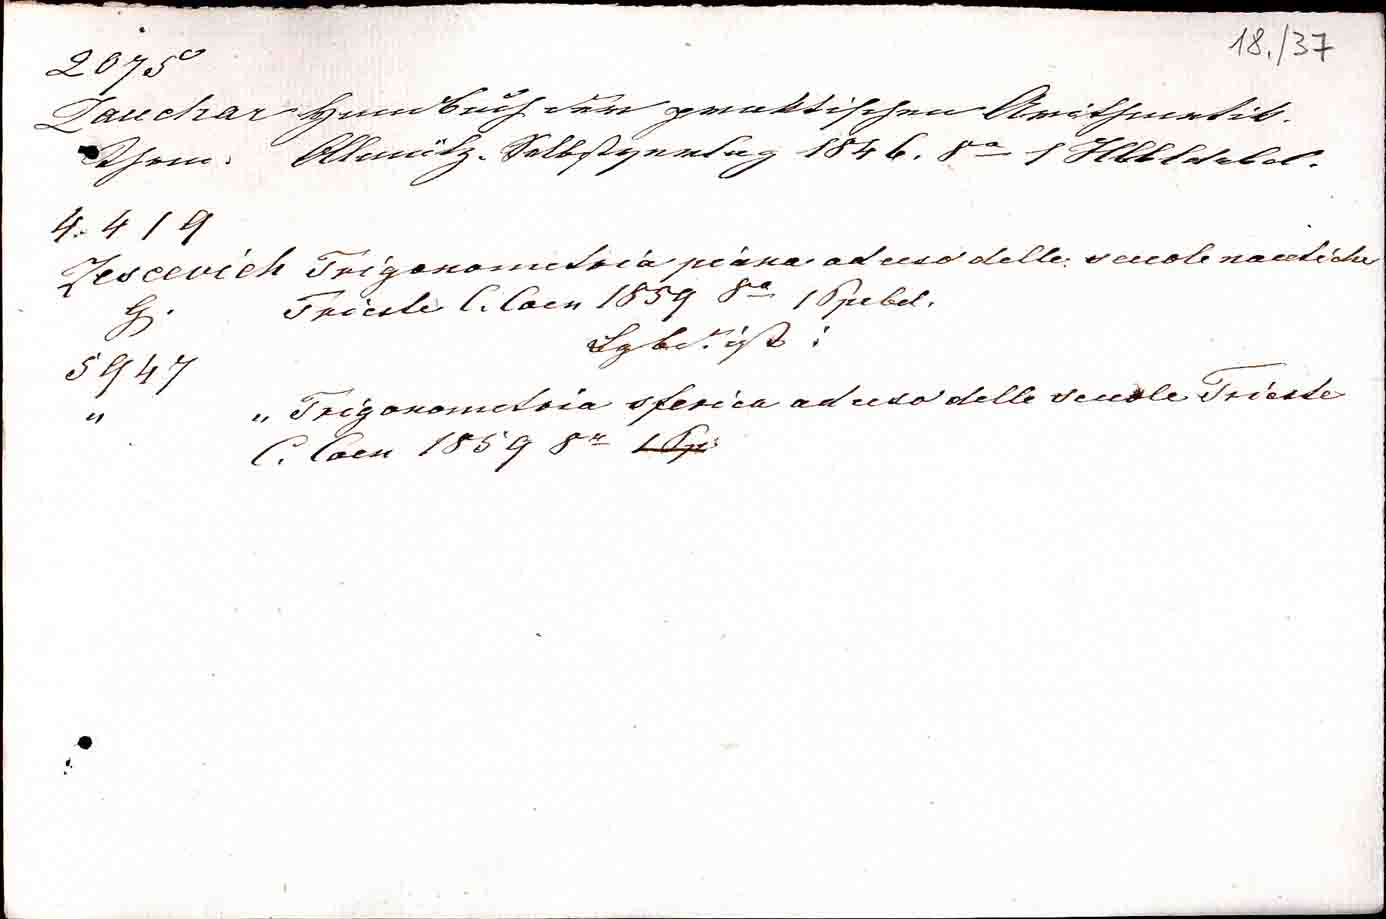 18./37
2075
Zauchar Handbuch der praktischen Arithmetik.
Thom. Olmütz. Selbstverlag 1846. 8° 1 Hlbldrbd.
4.419
Zescevich Trigonometria piana ad uso delle scuole nautiche
G. Trieste C. Coen 1859 8° 1 Ppbd.
5947
" " Trigonometria sferica ad uso delle scuole Trieste
C. Coen 1859 8° 1 Pp